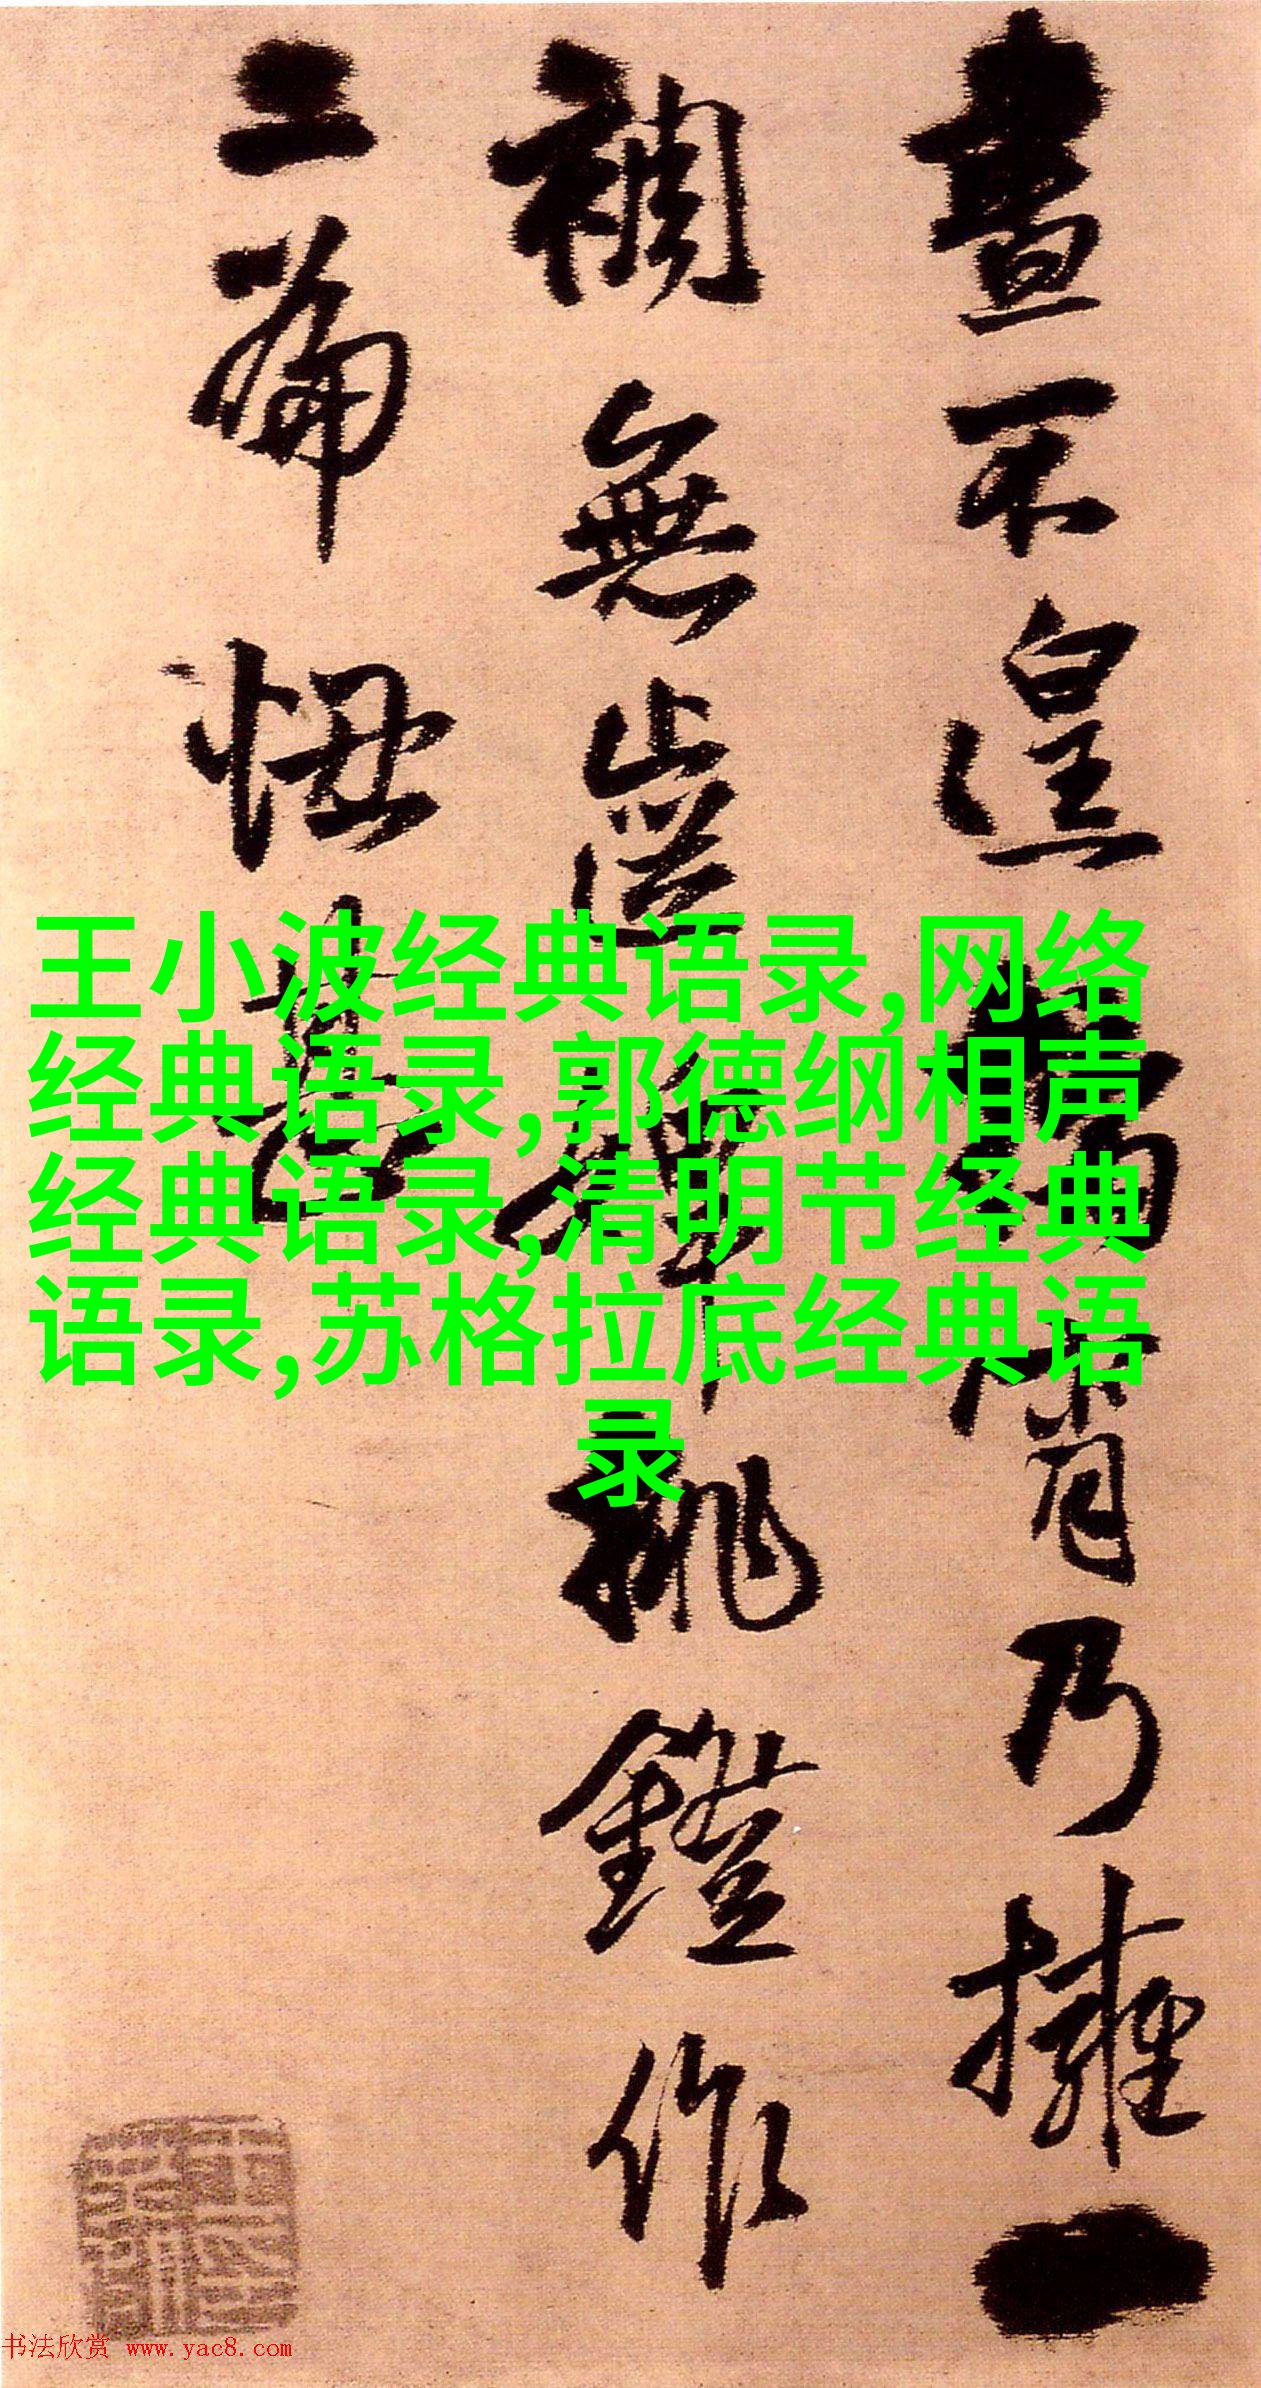 晝不遑揭宵乃擁一
裯無從禪挑鐙作
二篇悟慕
王小波经典语录,网络
经典语录,郭德纲相声
经典语录,清明节经典
语录,苏格拉底经典语
录
书法欣赏 www.yac8.com